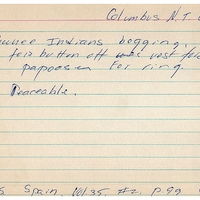 Columbus N.T.
Indians begging.
button off vest
papooses for ring.
Peaceable.
Spain, Vol. 35 #2, p. 99